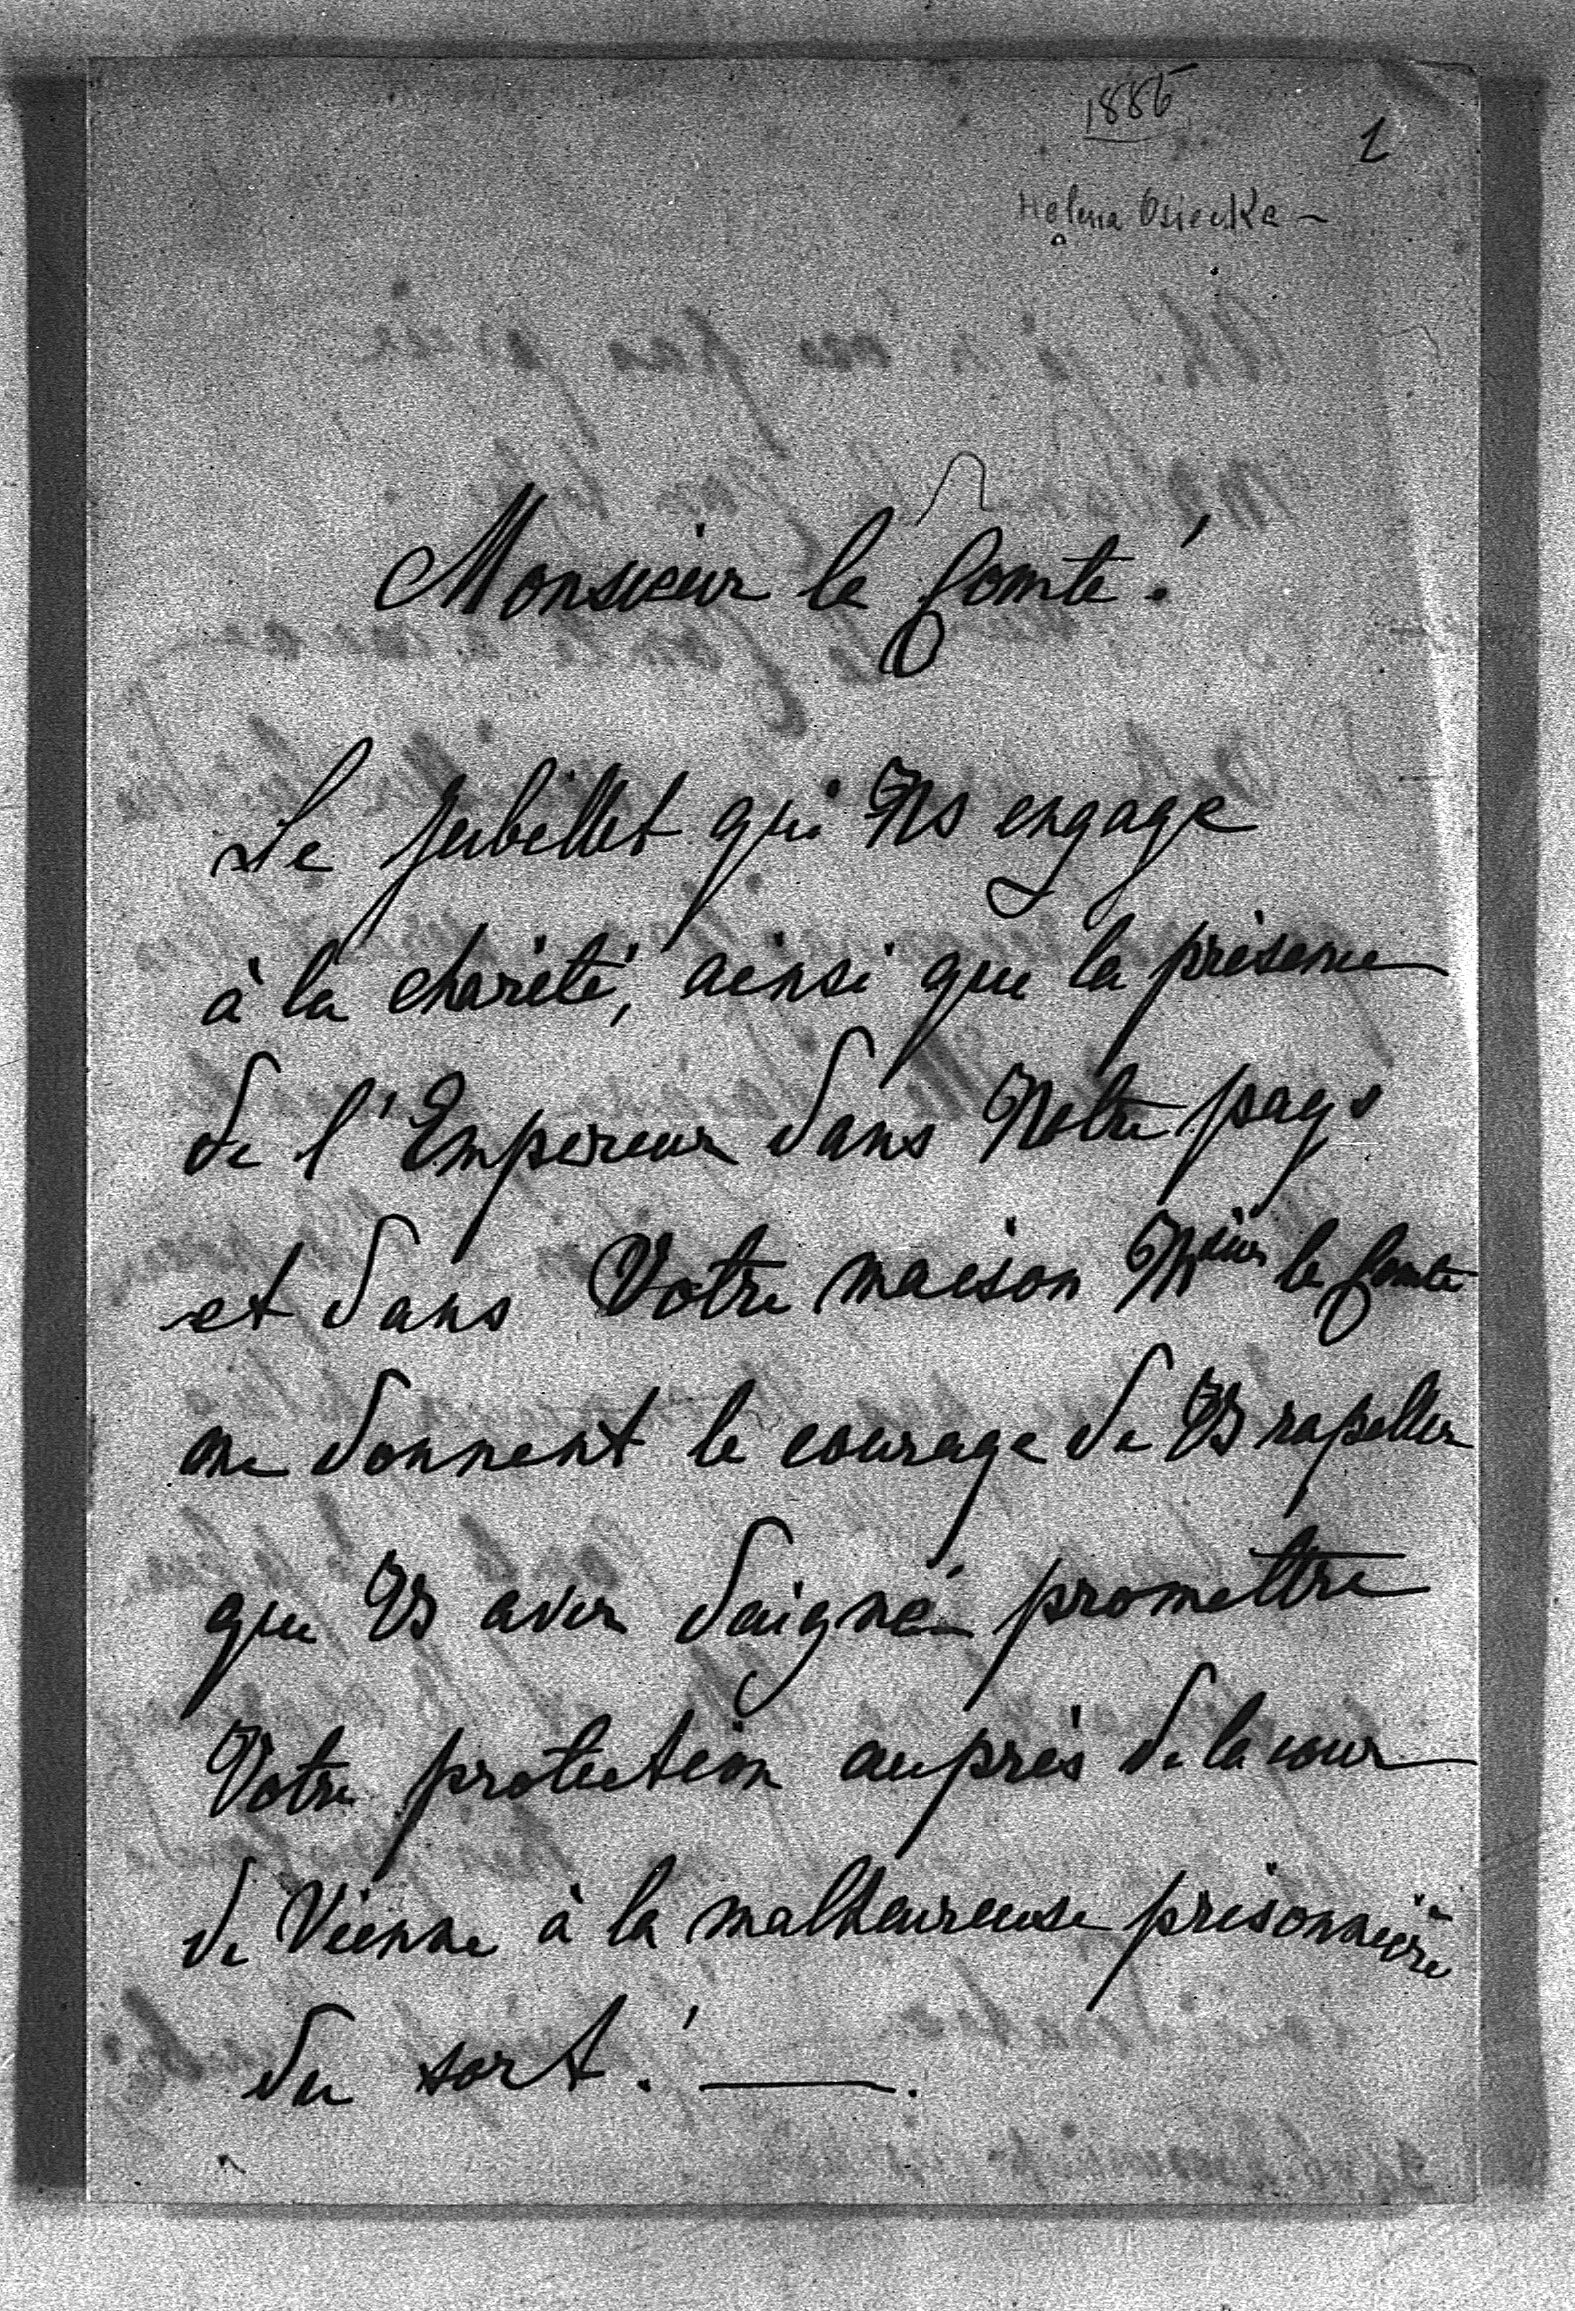 1886
1
Helena Osiecka –
Monsieur le Comte!
Le jubillet qui Ns engage
à la charité, ainsi que la présence
de l'Empereur dans Notre pays
et dans Votre maison Msieur le Comte
me donnent le courage de Vs rapeller
que Vs avez daigné promettre
Votre protection auprès de la cour
de Vienne à la malheureuse prisonnière
du sort! —.